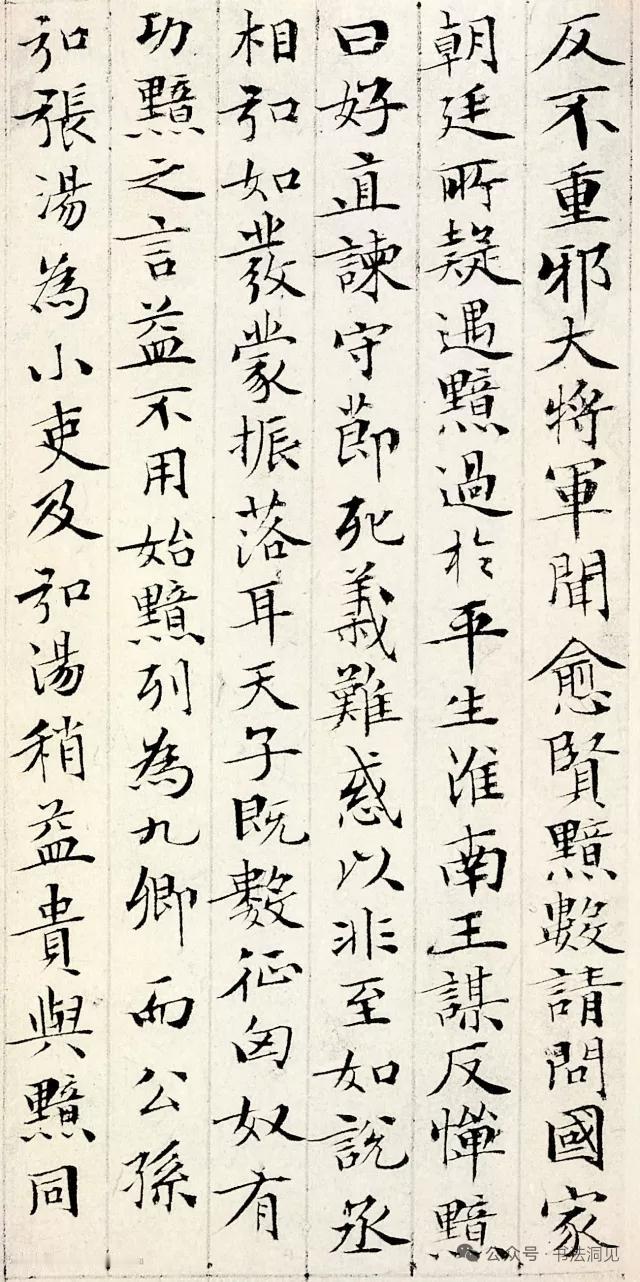 反不重邪大將軍聞愈賢黯數請問國家
朝廷所疑遇黯過於平生淮南王謀反憚黯
曰好直諫守節死義難惑以非至如說丞
相弘如發蒙振落耳天子既數征匈奴有
功黯之言益不用始黯列為九卿而公孫
弘張湯為小吏及弘湯稍益貴與黯同
公众号·书法洞见